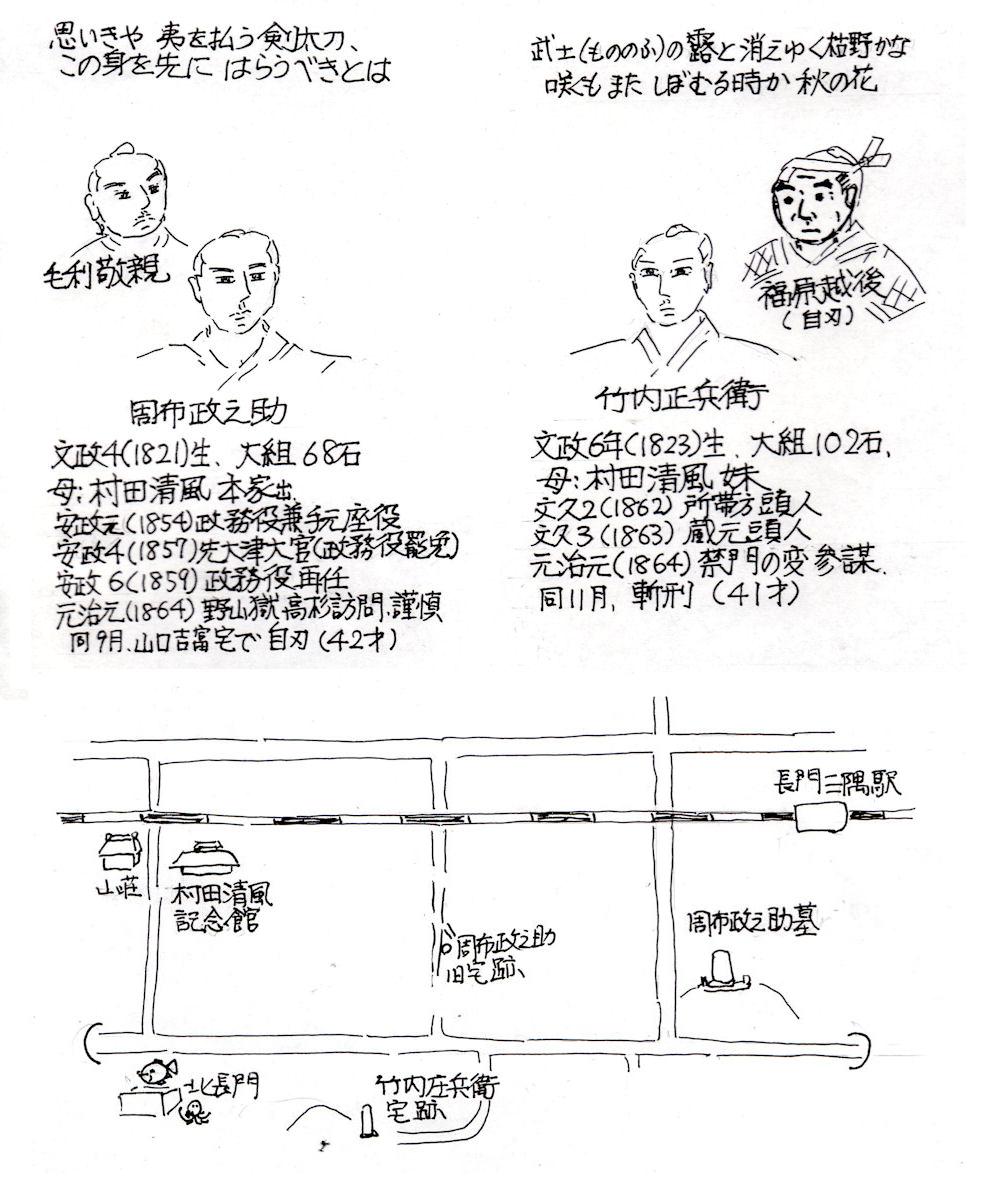 思いきや 夷を払う剣太刀、
この身を先に はらうべきとは
武士(もののふ)の露と消えゆく枯野かな
咲くも また しぼむる時か 秋の花
毛利敬親
福原越後
(自刃)
周布政之助
文政4(1821)生、大組68石
母:村田清風 本家出
安政元(1854)政務役兼手元座役
安政4(1857)先大津大官(政務役罷免)
安政6(1859)政務役再任
元治元(1864)野山獄高杉訪問、謹慎
同9月、山口吉富宅で自刃(42才)
竹内正兵衛
文政6年(1823)生、大組102石、
母:村田清風 妹
文久2(1862)所帯方頭人
文久3(1863)蔵元頭人
元治元(1864)禁門の変参謀、
同11月、斬刑(41才)
長門三隅駅
山荘
村田清風
記念館
周布政之助
旧宅跡
周布政之助墓
北長門
竹内庄兵衛
宅跡